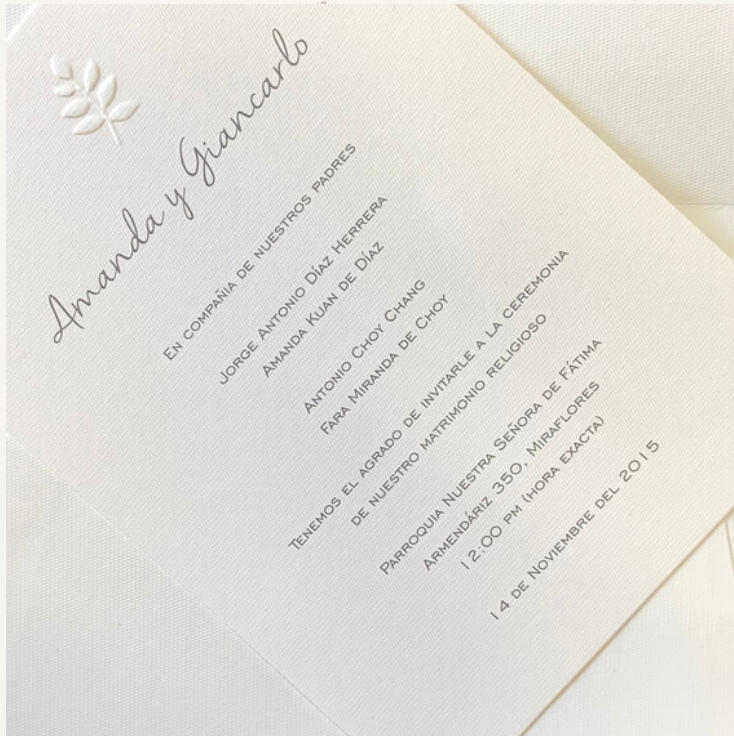 Amanda y Giancarlo
En compañia de nuestros padres
Jorge Antonio Díaz Herrera
Amanda Kuan de Díaz
Antonio Choy Chang
Fara Miranda de Choy
Tenemos el agrado de invitarle a la ceremonia
de nuestro matrimonio religioso
Parroquia Nuestra Señora de Fátima
Armendáriz 350, Miraflores
12:00 pm (hora exacta)
14 de Noviembre del 2015